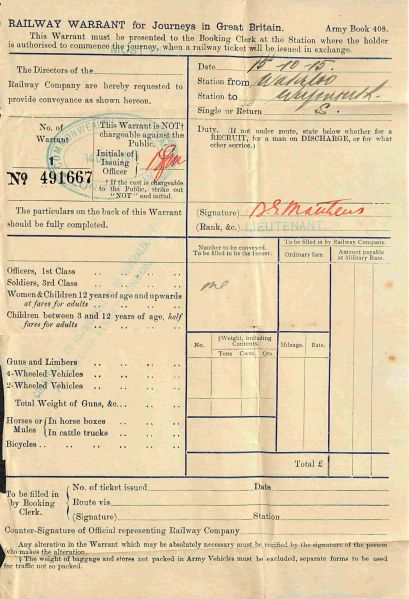 RAILWAY WARRANT for Journeys in Great Britain. Army Book 408.
This Warrant must be presented to the Booking Clerk at the Station where the holder
is authorised to commence the journey, when a railway ticket will be issued in exchange.
The Directors of the
Railway Company are hereby requested to
provide conveyance as shown hereon.
Date 15 10 15.
Station from Waterloo
Station to Weymouth.
Single or Return S.
No. of
Warrant
1
No 491667
This Warrant is NOT†
chargeable against the
Public.
Initials of
Issuing
Officer
† If the cost is chargeable
to the Public, strike out
"NOT" and initial.
Duty. (If not under route, state below whether for a
RECRUIT, for a man on DISCHARGE, or for what
other service.)
The particulars on the back of this Warrant
should be fully completed.
(Signature) Matthews
(Rank, &c.) LIEUTENANT.
Number to be conveyed.
To be filled in by the Issuer.
To be filled in by Railway Company.
Ordinary fare.
Amount payable
at Military Rate.
Officers, 1st Class
Soldiers, 3rd Class one
Women & Children 12 years of age and upwards
at fares for adults
Children between 3 and 12 years of age, half
fares for adults
No.
‡Weight, including
Contents.
Tons Cwts. Qrs.
Mileage. Rate.
Guns and Limbers
4-Wheeled Vehicles
2-Wheeled Vehicles
Total Weight of Guns, &c.
Horses or Mules
In horse boxes
In cattle trucks
Bicycles
Total £
To be filled in
by Booking
Clerk.
No. of ticket issued Date
Route via
(Signature) Station
Counter-Signature of Official representing Railway Company
Any alteration in the Warrant which may be absolutely necessary must be verified by the signature of the person
who makes the alteration.
‡ The weight of baggage and stores not packed in Army Vehicles must be excluded, separate forms to be used
for traffic not so packed.